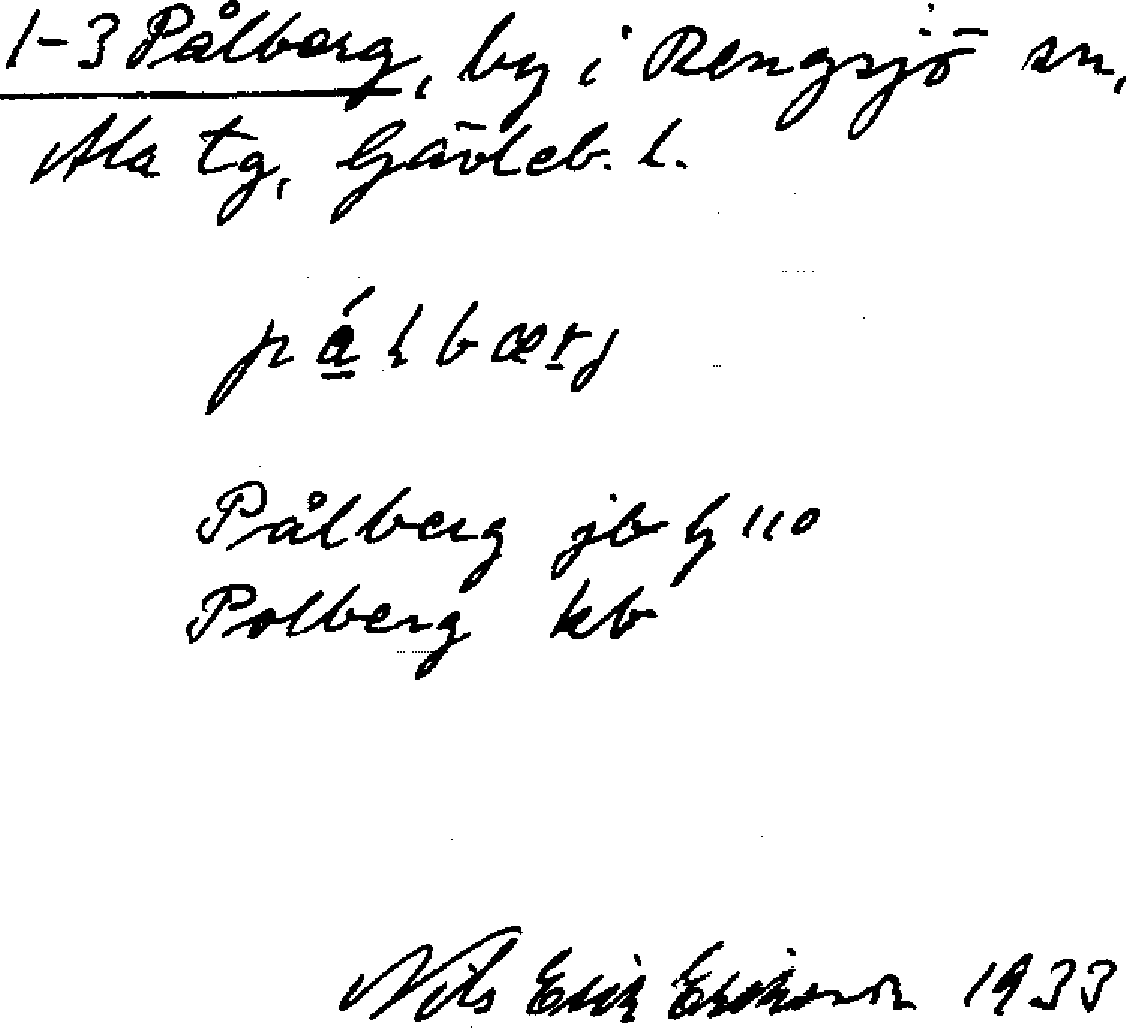 1-3 Pålberg, by i Rengsjö sn,
Ala tg, Gävleb. l.
pálbærj
Pålberg jb lg 110
Polberg kb
Nils Erik Eriksson 1933